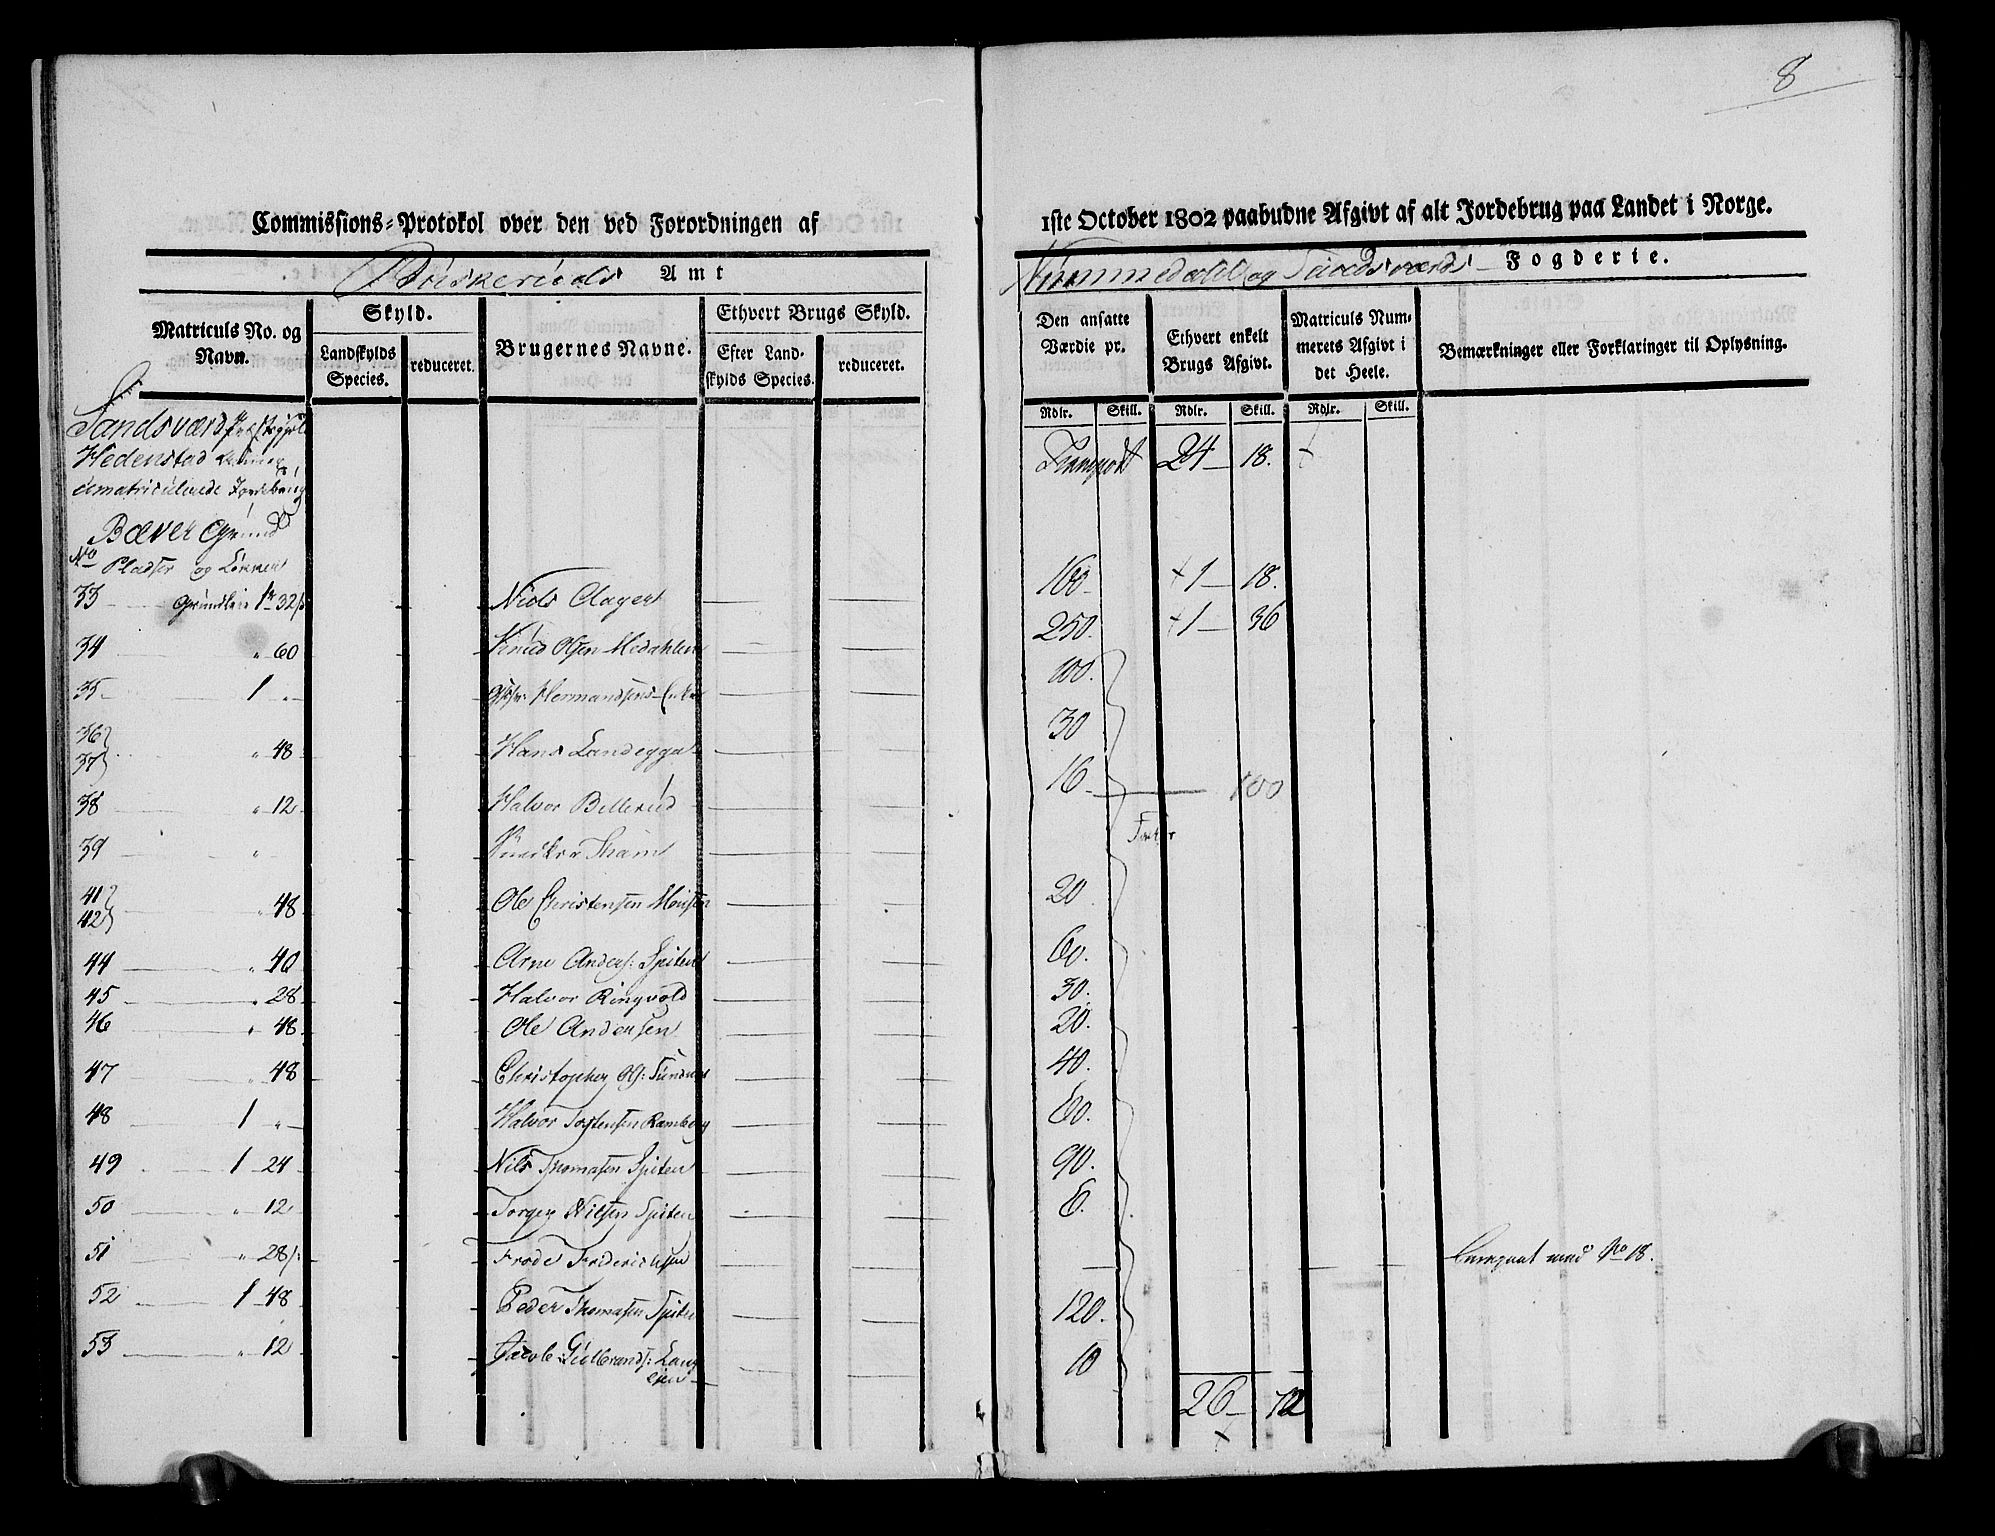 8
Commissions-Protokol over den ved Forordningen af 1ste October 1802 paabudne Afgivt af alt Jordebrug paa Landet i Norge.
Buskeruds Amt
Nummedahl og Sandsværds Fogderie.
Matriculs No. og Navn.
Skyld.
Landskylds Species.
reduceret.
Brugernes Navne.
Ethvert Brugs Skyld.
Efter Landskylds Species.
reduceret.
Den ansatte Værdie pr.
Ethvert enkelt Brugs Afgivt.
Matriculs Nummerets Afgivt i det Heele.
Bemærkninger eller Forklaringer til Oplysning.
Rdlr. Skill. Rdlr. Skill. Rdlr. Skill.
Sandsværds Præstegjeld
Hedenstad
umatriculerede Jordebrug
Transport 24 – 18.
Bæver Grund
No Pladser og Løkker
33 Grundleie 1 r 32 s Niels Clager 160 – +1 – 18.
34 " 60 Knud Olsen Medahlen 250. +1 – 36
35 1 " Hermandsens Enke 100.
36 37 " 48 Hans Landeygga 30
38 " 12 Halvor Bellerud 16 100
39 " Tham
41 42 " 48 Ole Christensen 20
44 " 40 Arne Anders: Spiten 60.
45 " 28 Halvor Ringvold 30.
46 " 48 Ole Andersen 20.
47 " 48 Christopher Ols: 40.
48 1 " Halvor Torstensen Ramberg 60.
49 1 24 Nils Thomasen Spiten 90.
50 " 12 Torger Nilsen Spiten 6.
51 " 28 s: Frode Friderichsen – med No 18.
52 1 48 Peder Thomasen Spiten 120.
53 " 12 Jacob Gulbrands: 10
26 – 72